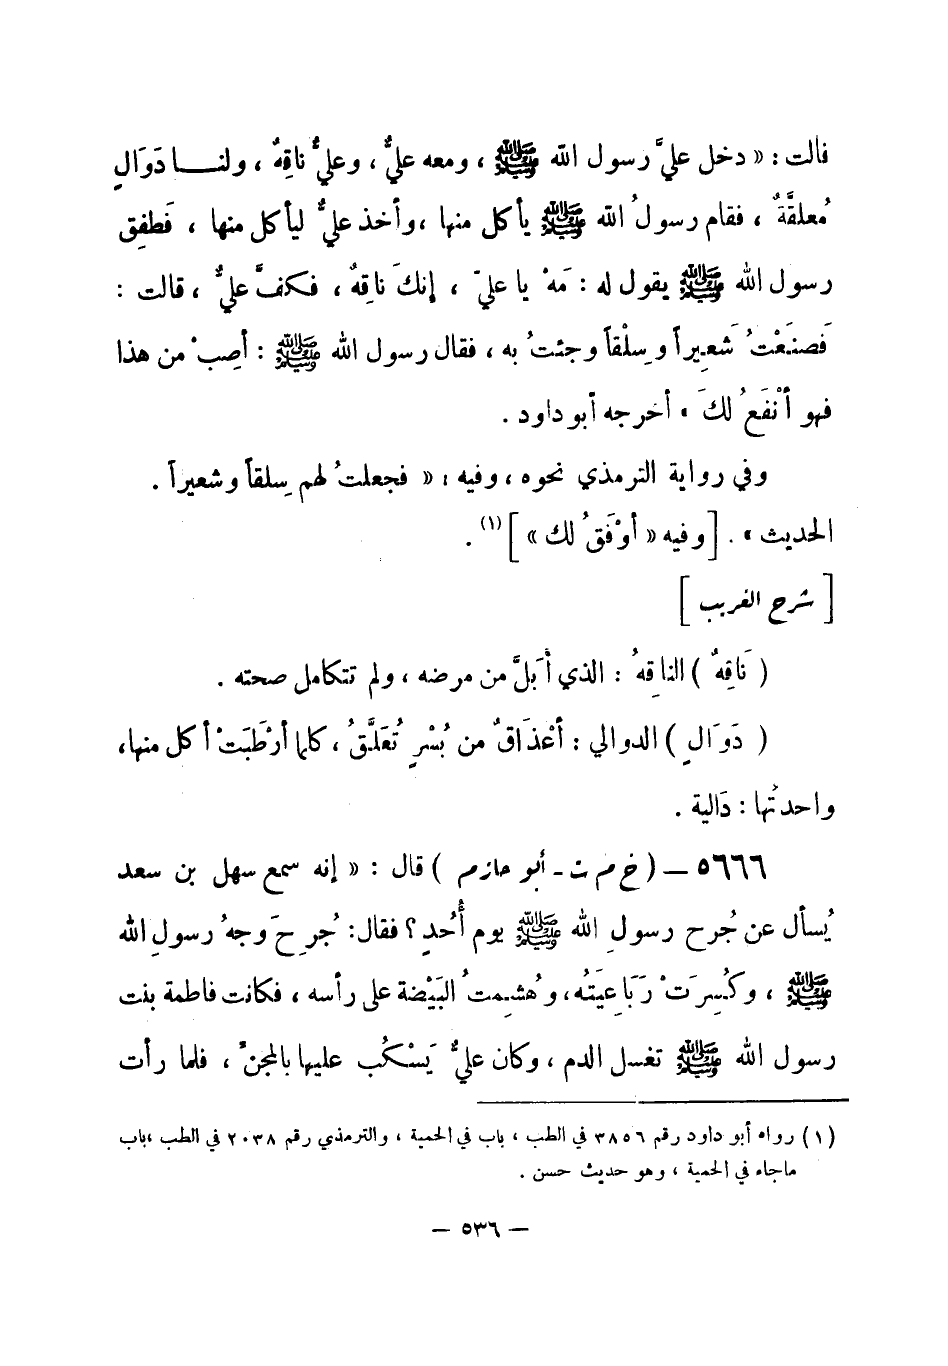 قالت : « دخل عليَّ رسول الله ﷺ ، ومعه عليٌّ ، وعليٌّ ناقِهٌ ، ولنــا دَوَالٍ
مُعلقَّةٌ ، فقام رسولُ الله ﷺ يأكل منها ، وأخذ عليٌّ ليأكل منها ، فَطفِق
رسول الله ﷺ يقول له : مَهْ يا عليّ ، إنكَ ناقِهٌ ، فكفَّ عليٌّ ، قالت :
فَصنَعْتُ شَعيراً وسِلْقاً وجئتُ به ، فقال رسول الله ﷺ : أصِبْ من هذا
فهو أنْفَعُ لكَ » أخرجه أبو داود .
وفي رواية الترمذي نحوه ، وفيه : « فجعلتُ لهم سِلقاً وشعيراً .
الحديث » . [ وفيه « أوْفَقُ لك » ] (١) .
[ شرح الغريب ]
( نَاقِهٌ ) الناقِهُ : الذي أبَلَّ من مرضه ، ولم تتكامل صحته .
( دَوَالٍ ) الدوالي : أعْذَاقٌ من بُسْرٍ تُعَلَّقُ ، كلما أرْطَبَتْ أكل منها،
واحدتُها : دَالية .
٥٦٦٦ – ( خ م ت - أبو حازم ) قال : « إنه سمع سهل بن سعد
يُسأل عن جُرح رسولِ الله ﷺ يوم أُحُدٍ ؟ فقال : جُرِحَ وجهُ رسولِ الله
ﷺ ، وكُسِرَتْ رَبَاعِيَتُه، وهُشِمتُ البَيْضة على رأسه ، فكانت فاطمة بنت
رسول الله ﷺ تغسل الدم ، وكان عليٌّ يَسْكُب عليها بالمجنِّ ، فلما رأت
(١) رواه أبو داود رقم ٣٨٥٦ في الطب ، باب في الحمية ، والترمذي رقم ٢٠٣٨ في الطب ،باب
ماجاء في الحمية ، وهو حديث حسن .
– ٥٣٦ –